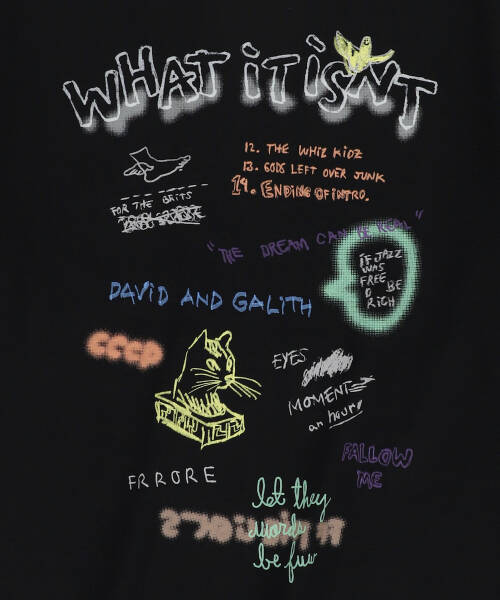 WHAT iT iSNT
12. THE WHiZ KiDZ
13. GODS LEFT OVER JUNK
14. ENDiNG OF iNTRO.
FOR THE BRiTS
"THE DREAM CAN BE REAL"
iF JAZZ
WAS
FREE
D BE
RiCH
DAViD AND GALiTH
CCCP
EYES
MOMENT
an hour
FALLOW
ME
FRRORE
let they
words
be fuw